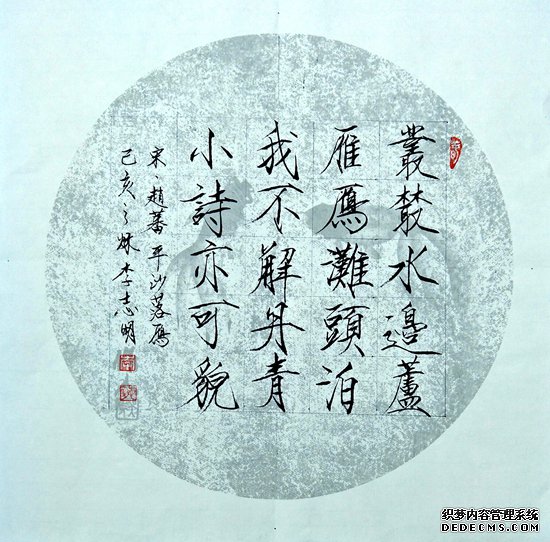 叢叢水邊蘆
雁鴈灘頭泊
我不解丹青
小詩亦可貌
宋、趙蕃 平沙落鴈
己亥之秌 李志明
织梦内容管理系统
DEDECMS.COM